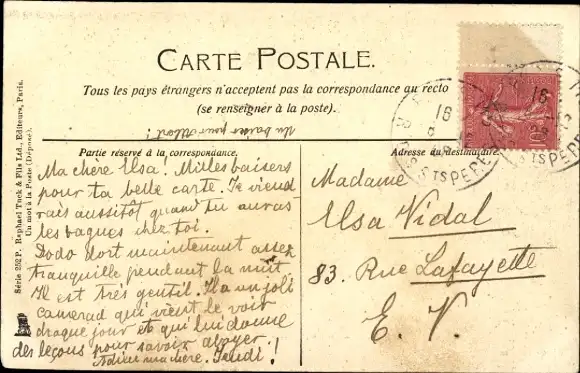 CARTE POSTALE.
Tous les pays étrangers n'acceptent pas la correspondance au recto
(se renseigner à la poste).
Un baiser pour
Partie réservé à la correspondance.
Adresse du destinataire.
Ma chère Elsa! Milles baisers
pour ta belle carte. Je viend
rais aussitôt quand tu auras
les bagues chez toi.
Dodo dort maintenant assez
tranquille pendant la nuit
Il est très gentil. Il a un joli
camerad qui vient le voir
chaque jour et qui lui donne
des leçons pour savoir
Adieu ma chère. Jeudi!
Madame
Elsa Vidal
83. Rue Lafayette
E. V.
Série 252 P. Raphael Tuck & Fils Ltd., Editeurs, Paris.
Un mot à la Poste (Déposé).
16
16